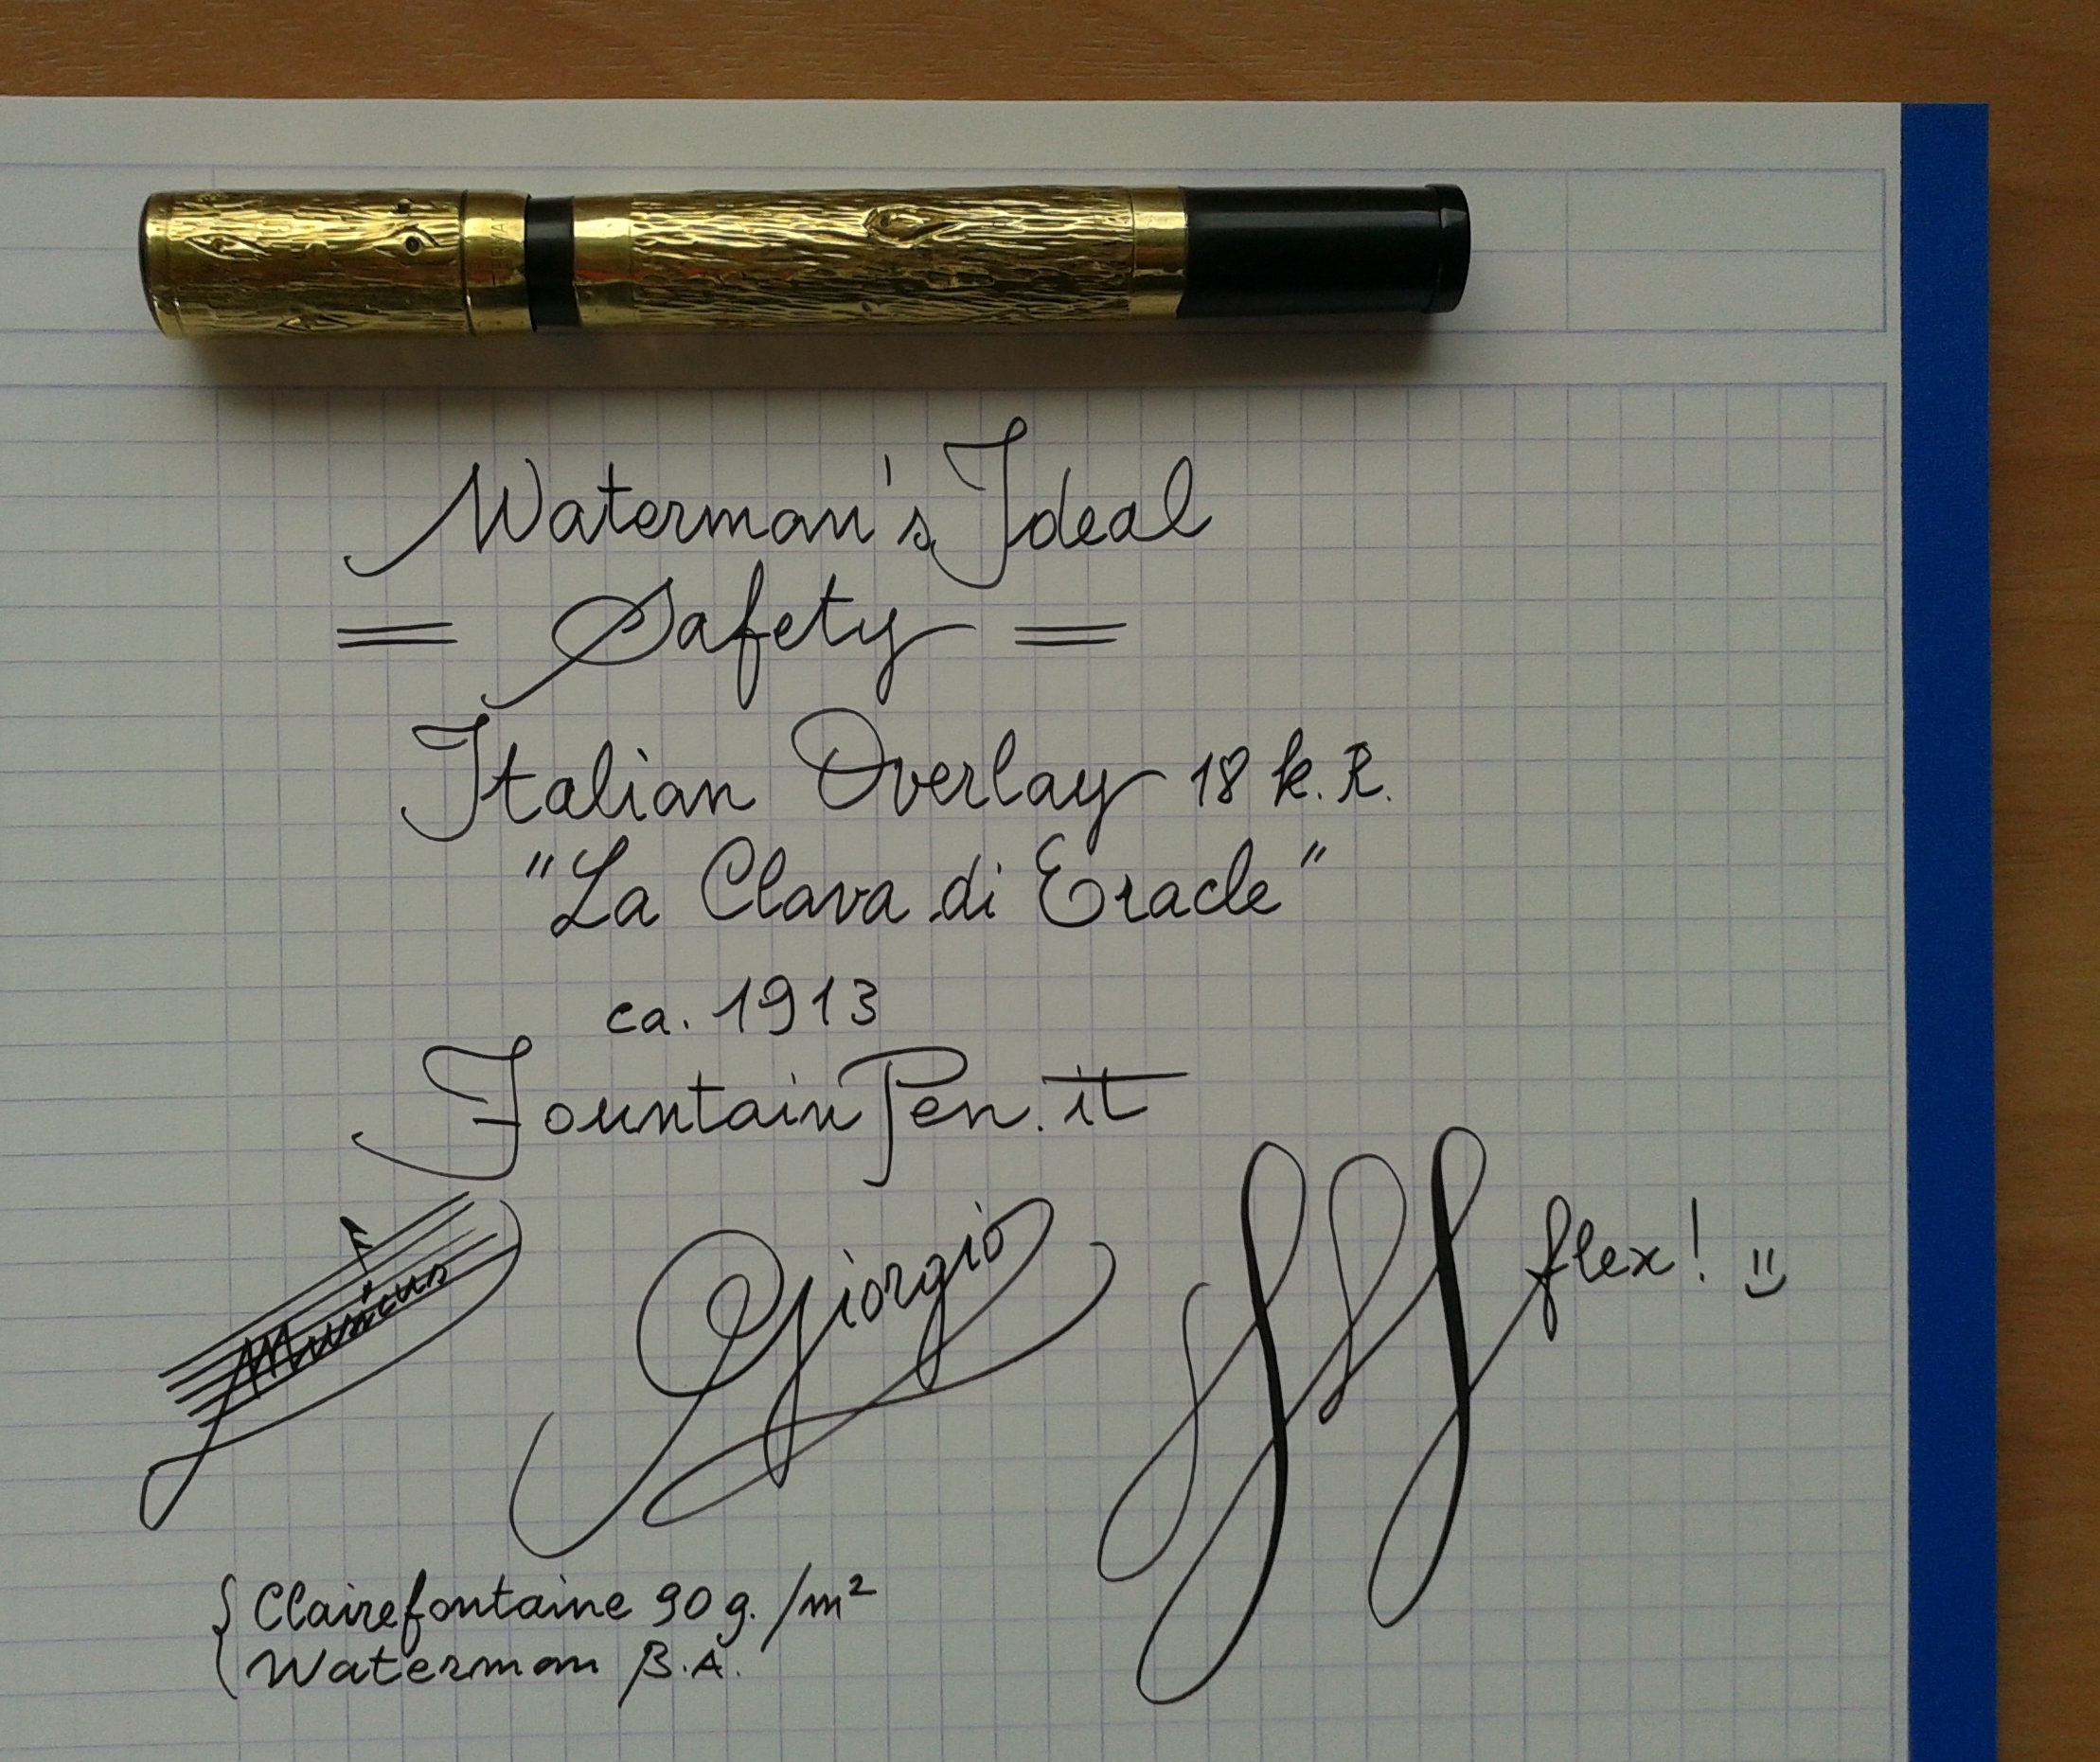 Waterman's Ideal
= Safety =
Italian Overlay 18 k. R.
"La Clava di Eracle"
ca. 1913
FountainPen.it
Musicus
Giorgio
fff flex! =)
Clairefontaine 90 g. /m²
Waterman B.A.